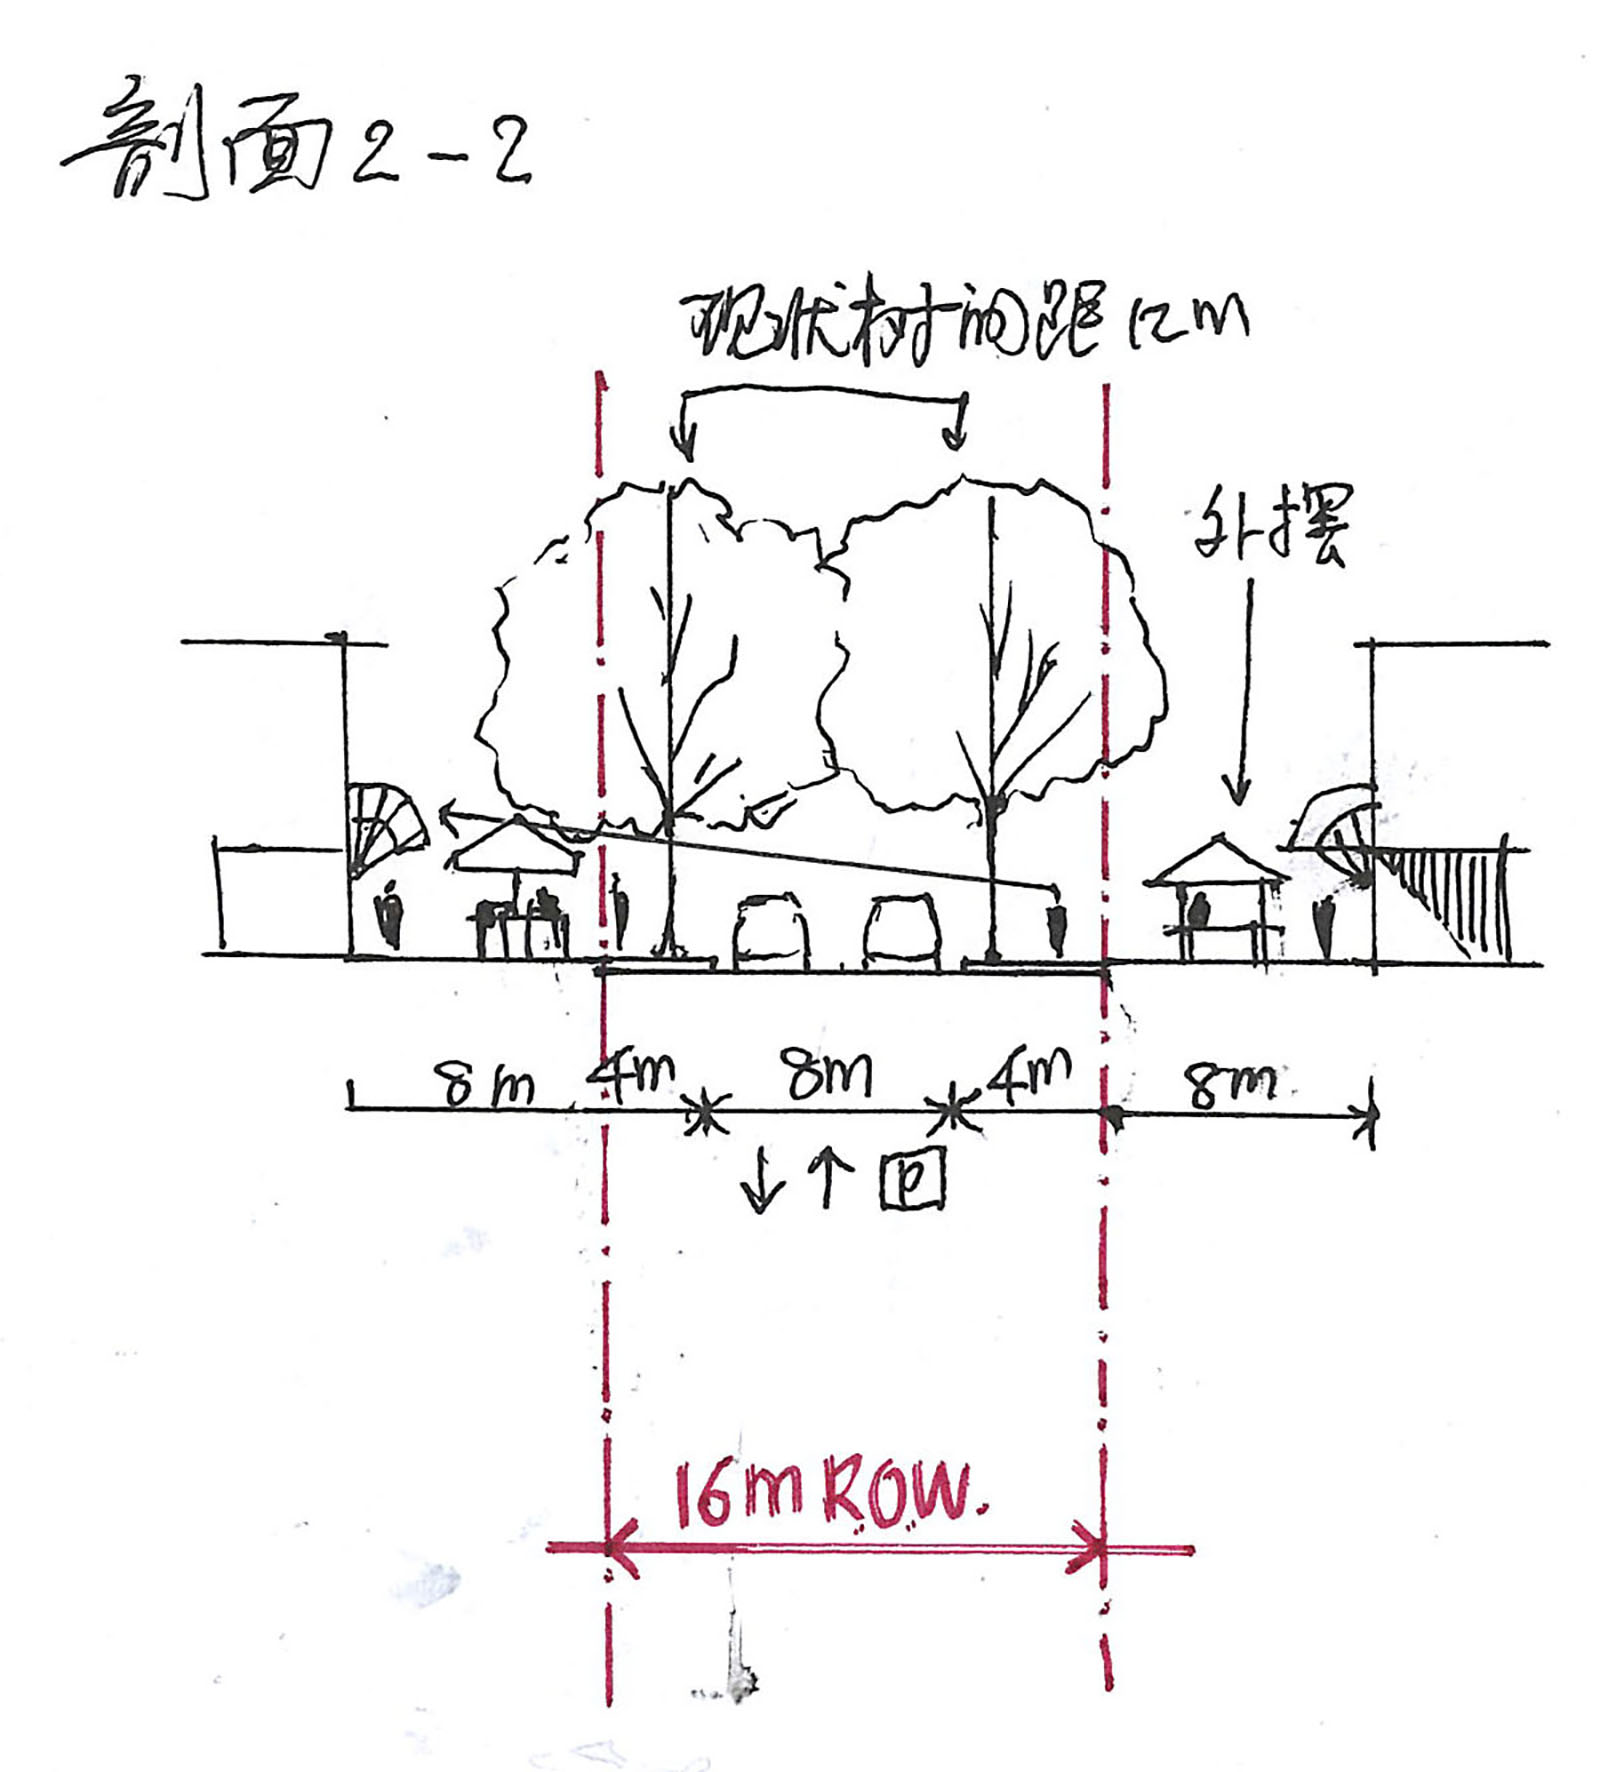 剖面2-2
现状树间距12m
外摆
8m 4m 8m 4m 8m
P
16m R.O.W.